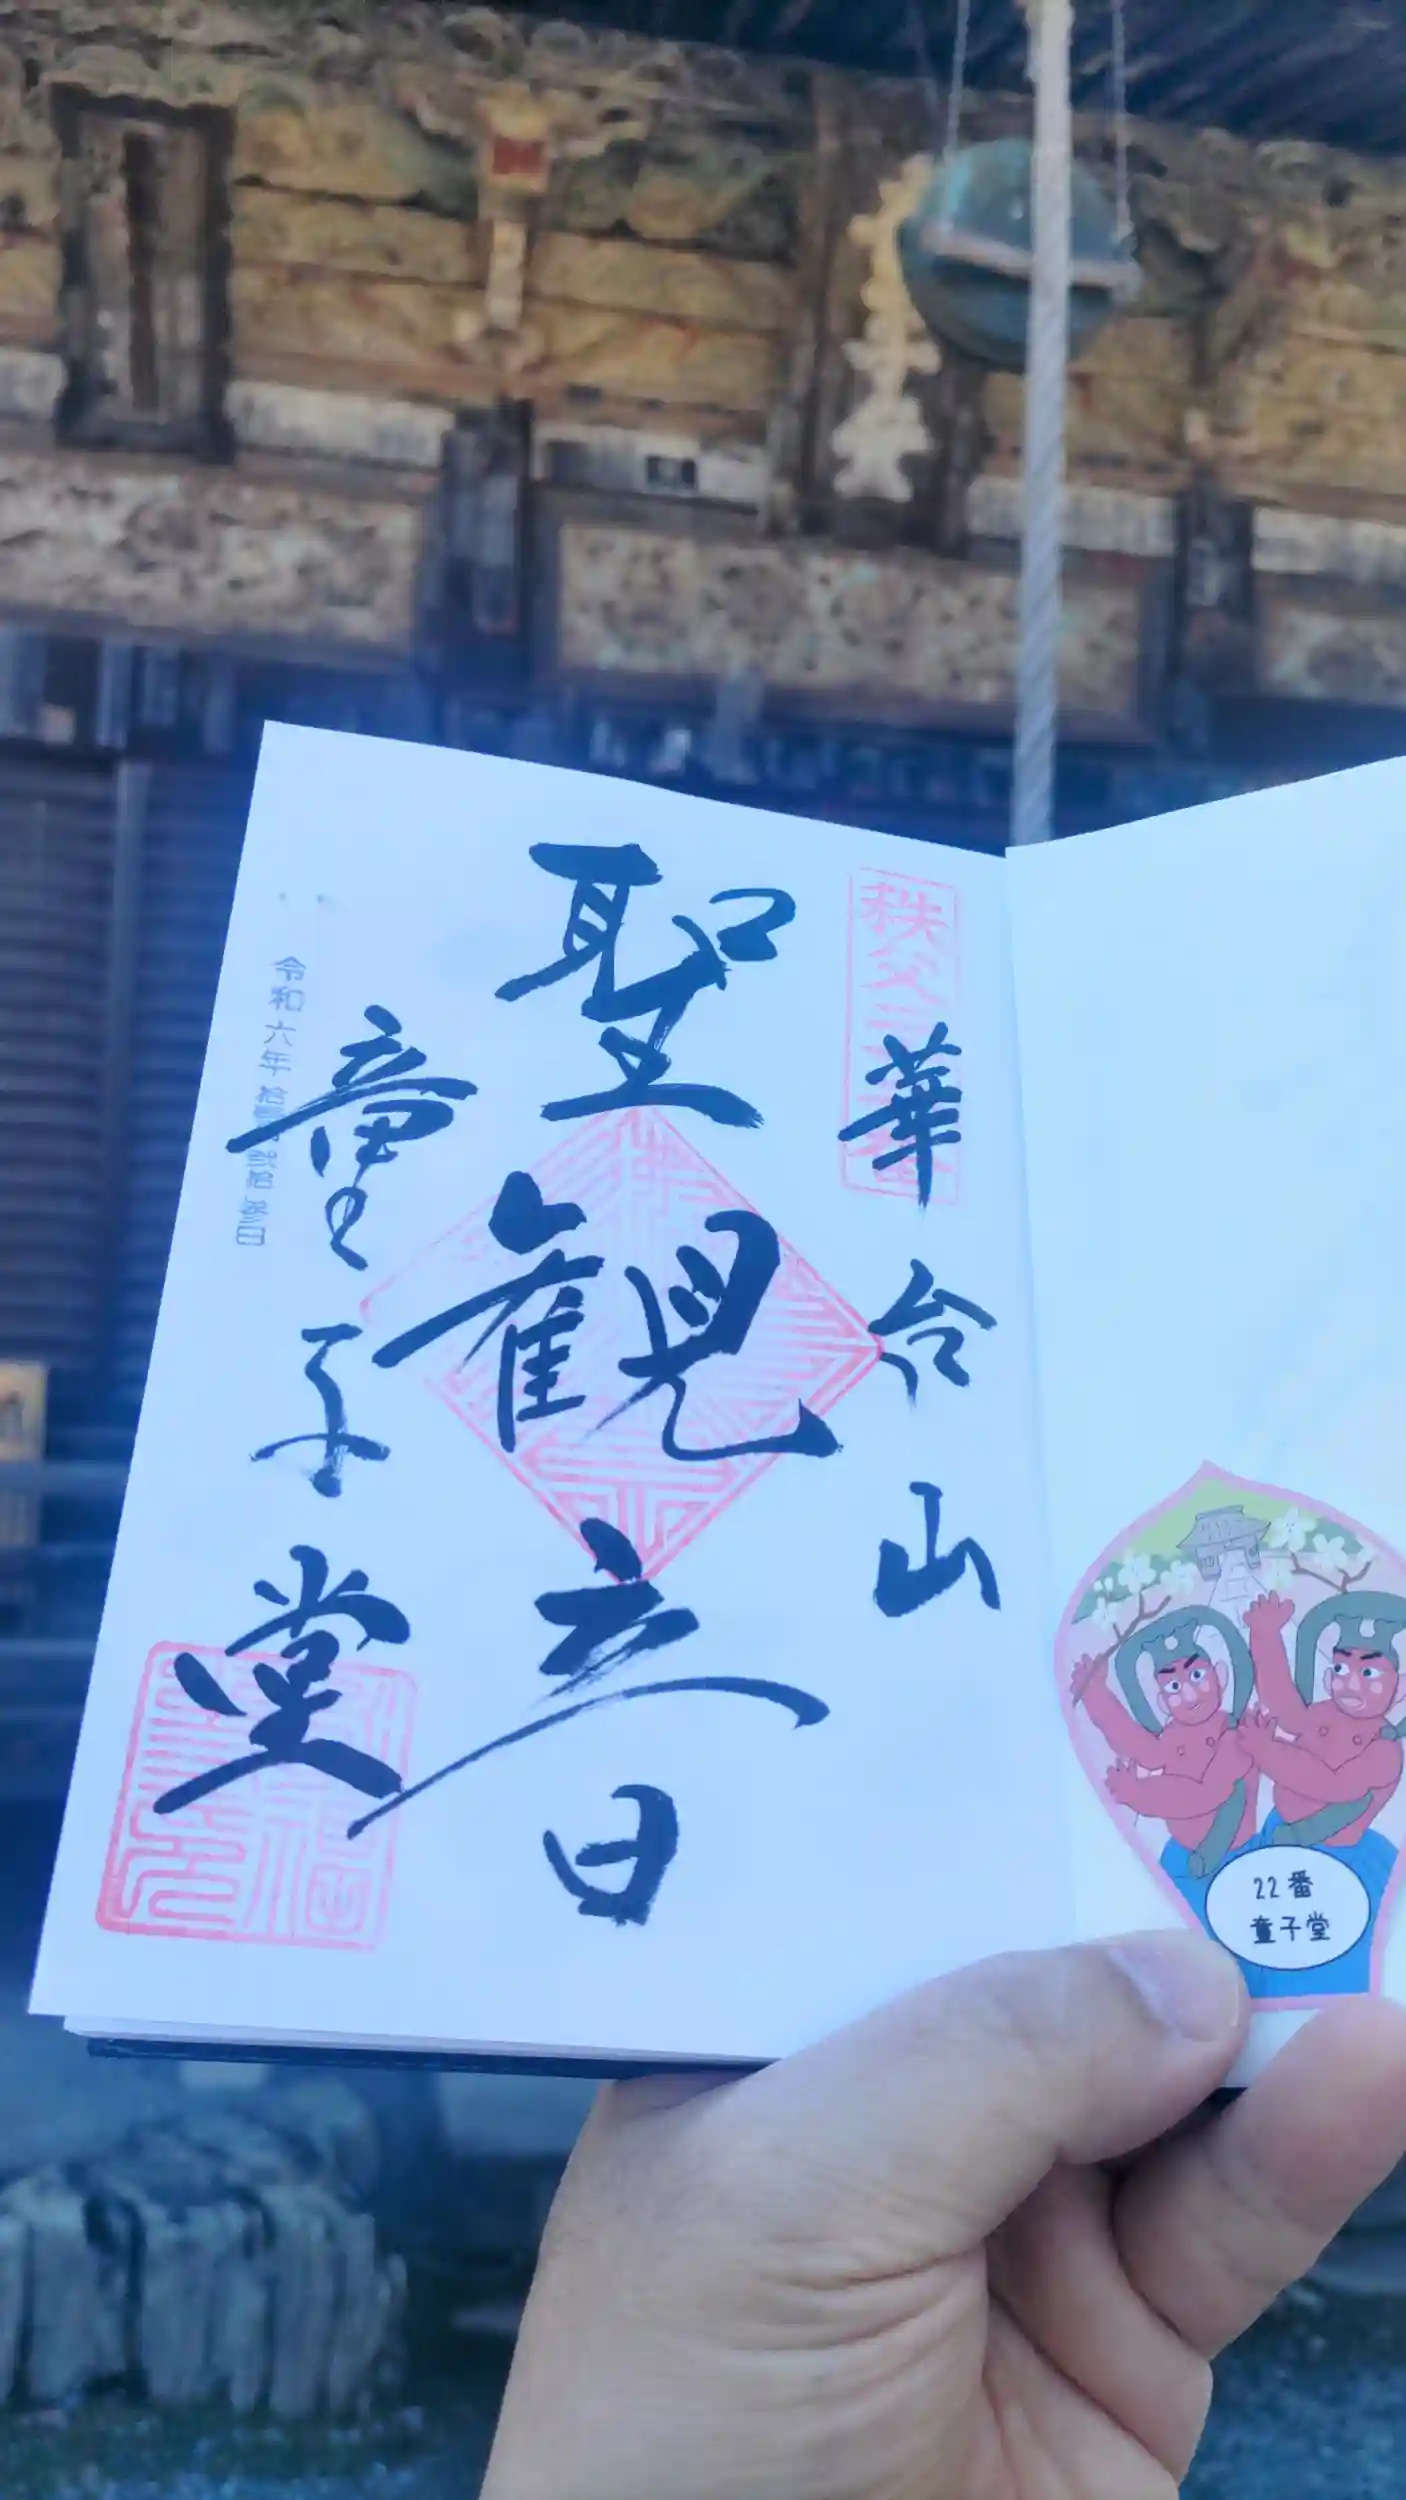 秩父
華台山
聖観音
童子堂
令和六年拾
弐拾参日
22番
童子堂